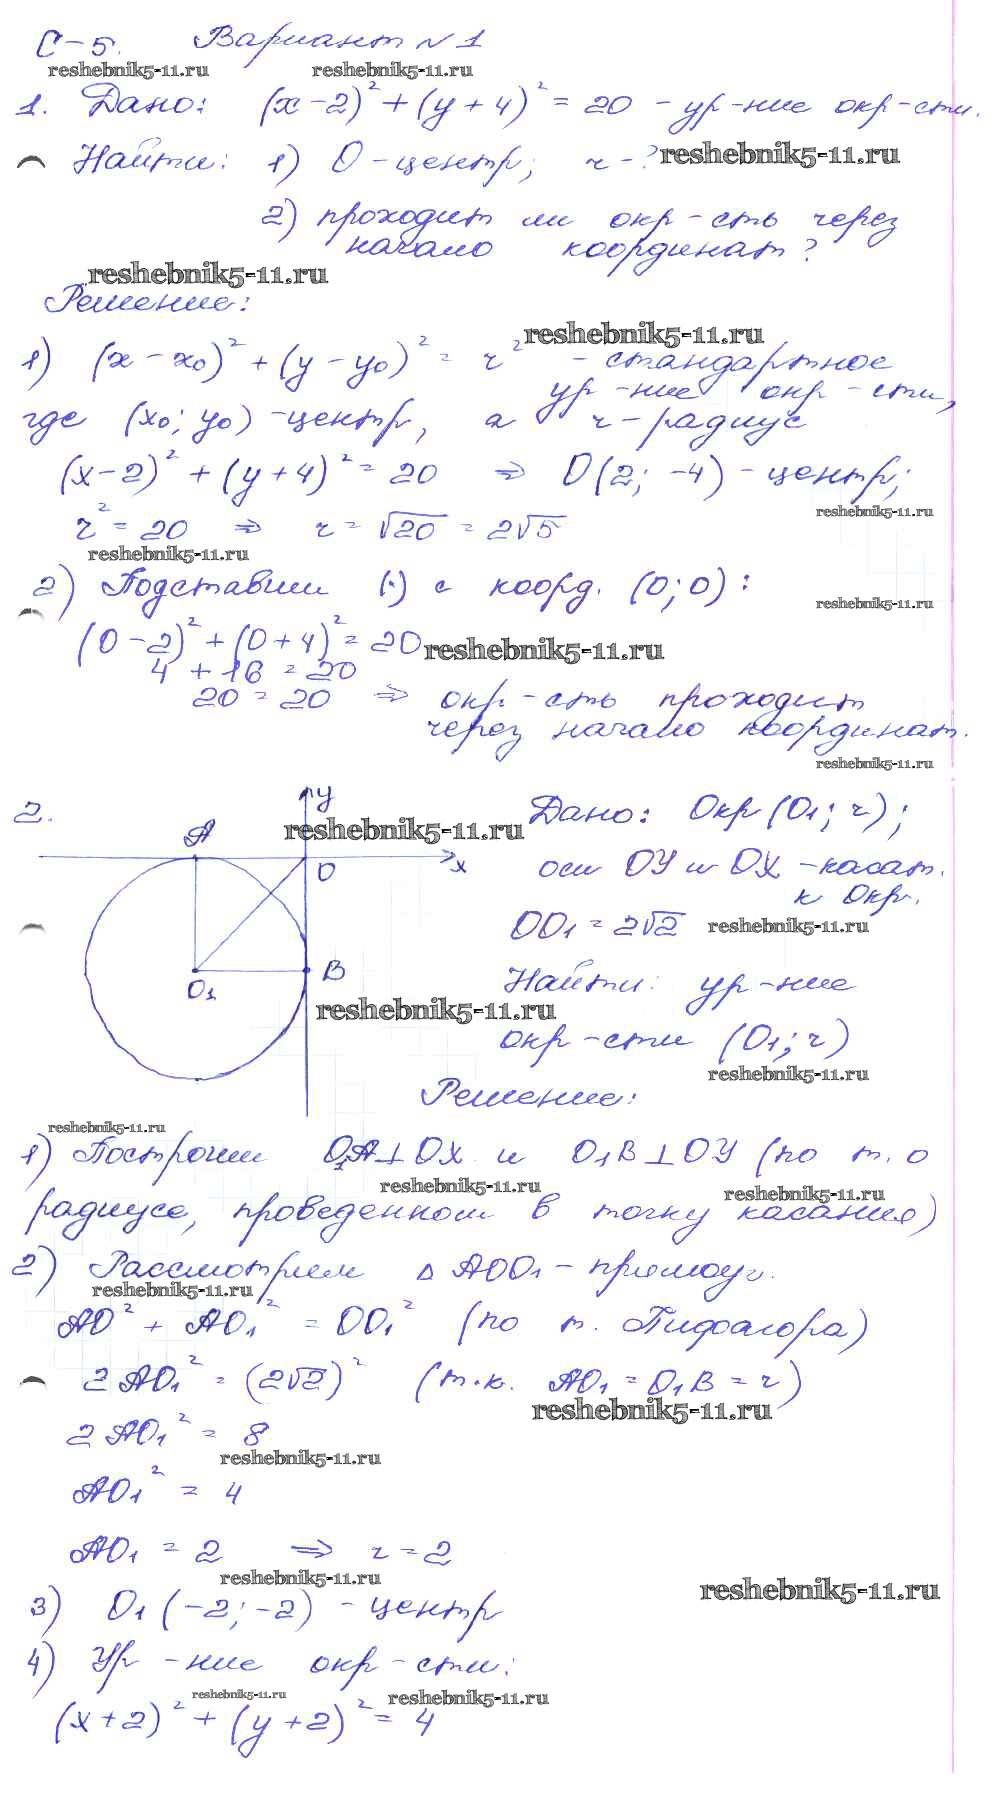 С-5. Вариант №1
reshebnik5-11.ru reshebnik5-11.ru
1. Дано: (x-2)² + (y+4)² = 20 - ур-ние окр-сти.
Найти: 1) О-центр; r-? reshebnik5-11.ru
2) проходит ли окр-сть через
начало координат?
reshebnik5-11.ru
Решение:
reshebnik5-11.ru
1) (x-x₀)² + (y-y₀)² = r² - стандартное
ур-ние окр-сти,
где (x₀; y₀) -центр, а r-радиус
(x-2)² + (y+4)² = 20 ⇒ О(2; -4) - центр;
reshebnik5-11.ru
r² = 20 ⇒ r = √20 = 2√5
reshebnik5-11.ru
2) Подставим (·) с коорд. (0; 0):
reshebnik5-11.ru
(0-2)² + (0+4)² = 20
reshebnik5-11.ru
4 + 16 = 20
20 = 20 ⇒ окр-сть проходит
через начало координат.
reshebnik5-11.ru
2.
y
A
reshebnik5-11.ru
x
O
B
O₁
reshebnik5-11.ru
Дано: Окр(O₁; r);
оси OY и OX -касат.
к Окр.
OO₁ = 2√2 reshebnik5-11.ru
Найти: ур-ние
окр-сти (O₁; r)
reshebnik5-11.ru
Решение:
reshebnik5-11.ru
1) Построим O₁A⊥OX и O₁B⊥OY (по т. о
reshebnik5-11.ru reshebnik5-11.ru
радиусе, проведенном в точку касания)
2) Рассмотрим △AOO₁ - прямоуг.
reshebnik5-11.ru
AO² + AO₁² = OO₁² (по т. Пифагора)
2AO₁² = (2√2)² (т.к. AO₁ = O₁B = r)
reshebnik5-11.ru
2AO₁² = 8
reshebnik5-11.ru
AO₁² = 4
AO₁ = 2 ⇒ r = 2
reshebnik5-11.ru
reshebnik5-11.ru
3) O₁(-2; -2) - центр
4) Ур-ние окр-сти:
reshebnik5-11.ru reshebnik5-11.ru
(x+2)² + (y+2)² = 4